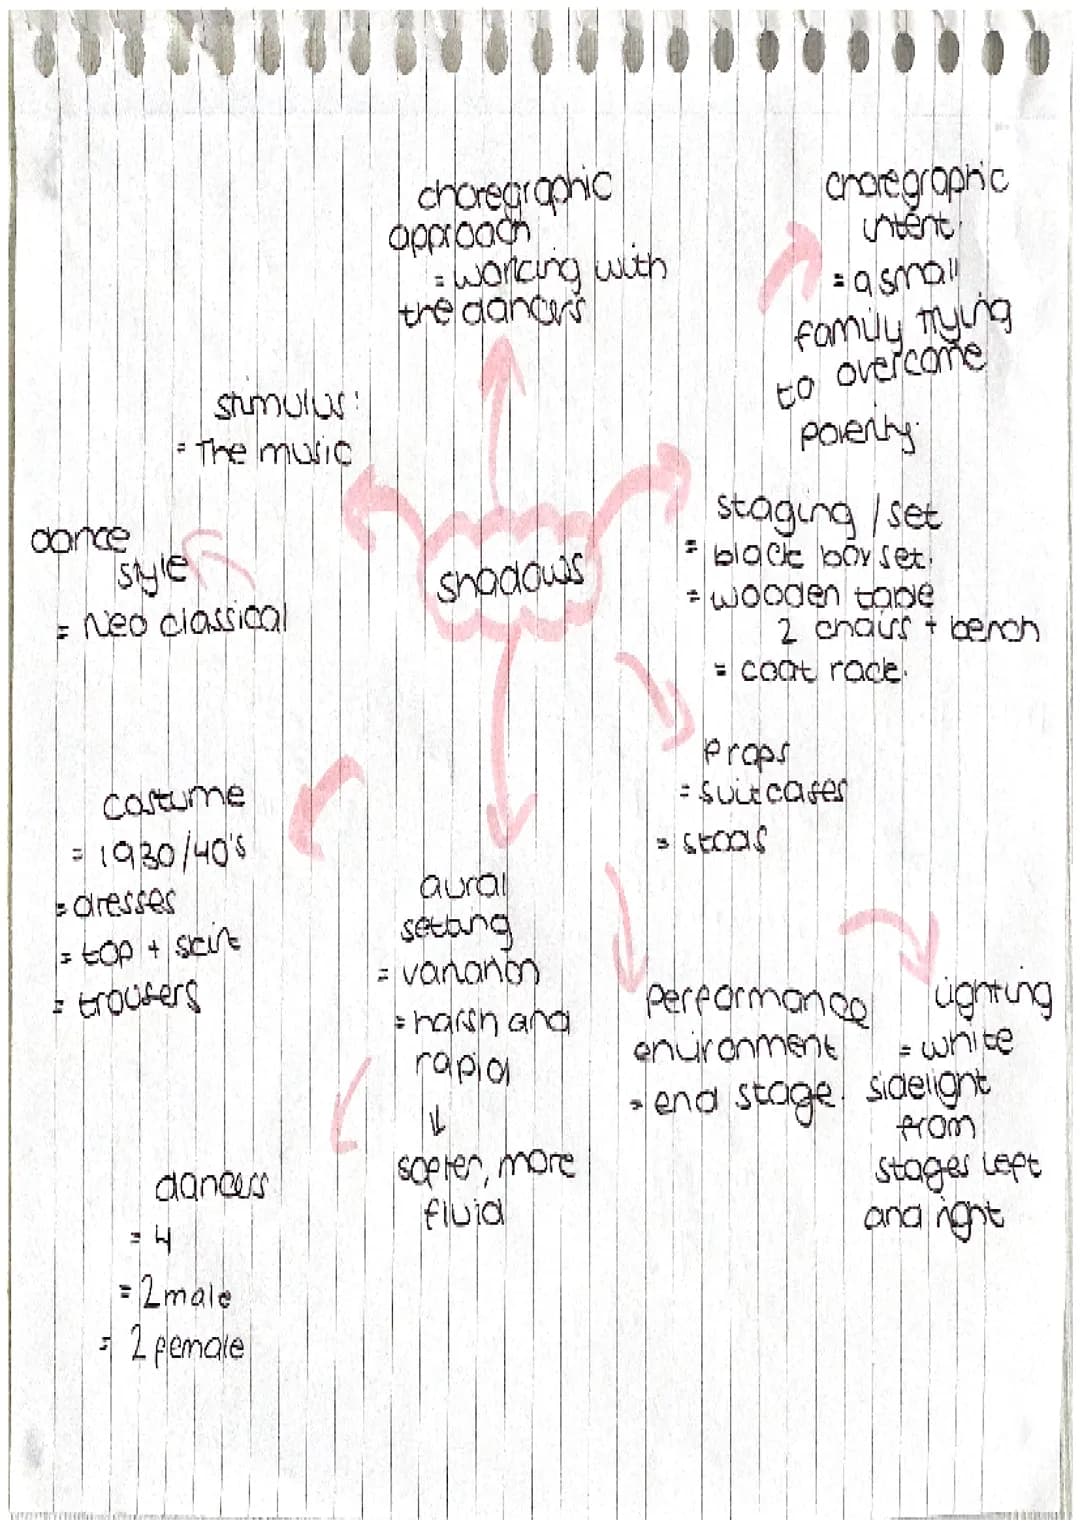 choregraphic
approach
= working with
the dancers
choregraphic
intent.
= a small
family trying
to overcome
poverty.
stimulus:
= The music
dance
style
= Neo classical
shadows
staging / set
= black box set.
= wooden table
2 chairs + bench
= coat rack.
Props
= suitcases
= stools
costume
= 1930/40's
= dresses
= top + skirt
= trousers
aural
setting
= variation
= harsh and
rapid
↓
softer, more
fluid
performance
environment
= end stage.
Lighting
= white
sidelight
from
stages left
and right
dancers
= 4
= 2 male
= 2 female